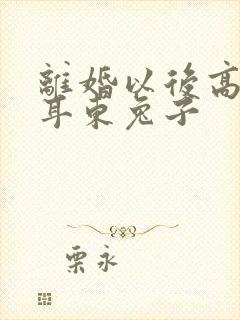 離婚以後高
耳東兔子
栗永